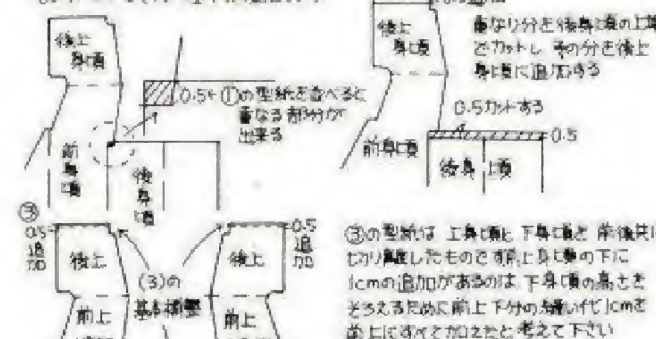 後上
身頃
0.5 ①の型紙を並べると
重なる部分が
出来る
前
身
頃
後
身
頃
後上
身頃
重なり分を後身頃の上端
でカットし その分を後上
身頃に追加する
0.5カットする
0.5
前身頃
後身頃
③
0.5
追
加
後上
(3)の
基本調整
後上
0.5
追
加
前上
前上
③の型紙は 上身頃と下身頃を 前後共に
切り離したものです前上身頃の下に
1cmの追加があるのは 下身頃の高さを
そろえるために前上下分の縫い代1cmを
前上にすべて加えたと考えて下さい